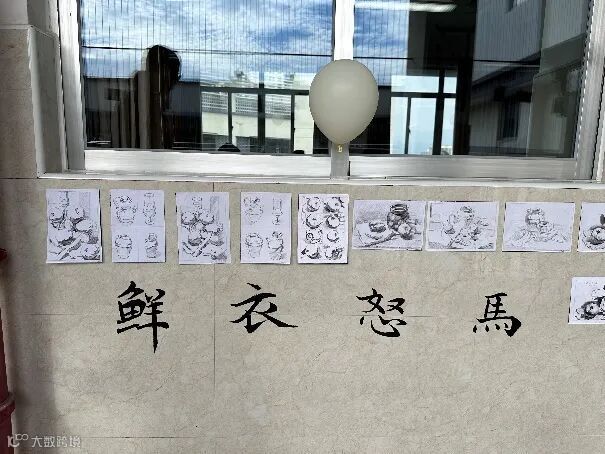 鮮衣怒馬
大数跨境